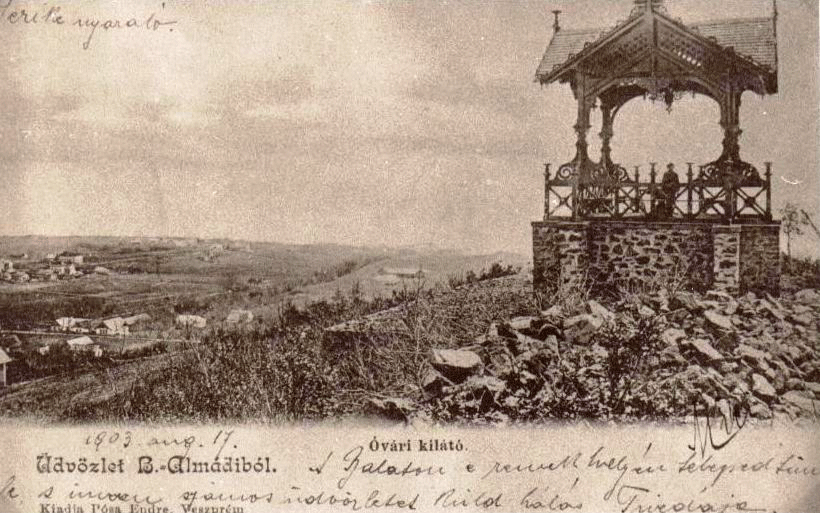 nyaraló.
1903 aug. 17.
Óvári kilátó.
Üdvözlet B.-Almádiból.
A Balaton e remek helyén
s innen számos üdvözletet küld hálás
Kiadja Pósa Endre, Veszprém